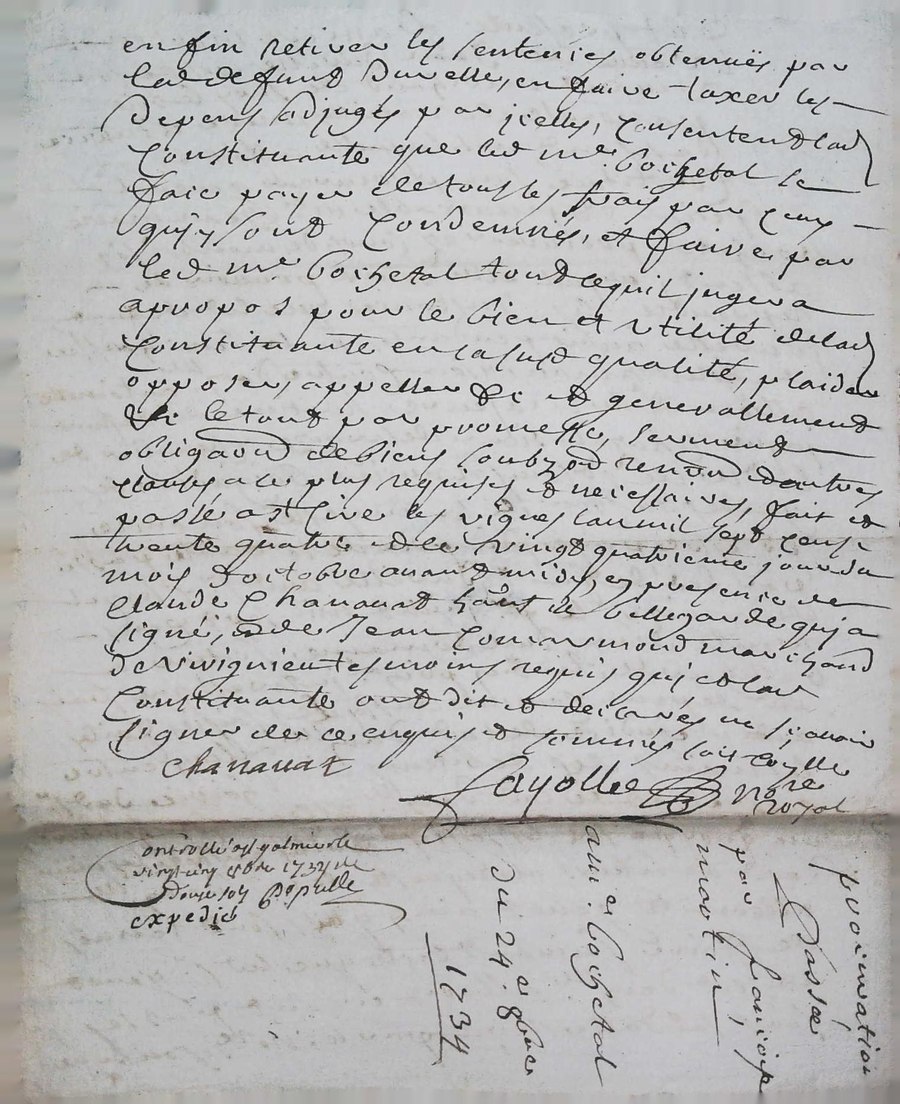 enfin retirer les sentences obtenuës par
led defunt Duvelle, en faire taxer les
depens adjugés par icelles, consentend lad
constituante que led me Bochetal se
faie payer de tous les frais par ceux
quj y sont condemnés, et faire par
led me Bochetal tout ce quil jugera
apropos pour le bien et utilité de lad
constituante en sa susd qualité, plaider
opposer, appeller &c et generallement
&c le tout par promesse, serment
obligaon de biens soubz on renonon et autres
clauses a ce plus requises et necessaires, fait et
passé a st Cire les vignes l'an mil sept cent
trente quatre et le vingt quatrieme jour du
mois d'octobre avant midy, en presence de
Claude Chanavat hant de Bellegarde quj a
signé, et de Jean Commarmond marchand
de Rivignieu tesmoins requis quj et lad
constituante ont dit et declarés ne sçavoir
signer de ce enquis et sommés
Chanavat
Fayolle nore
royal
Controllé a st galmier le
vingt cinq 8bre 1734 de
Douze sols
expedié
procuration
Passée
par françoise
martin
a me Bochetal
du 24e 8bre
1734